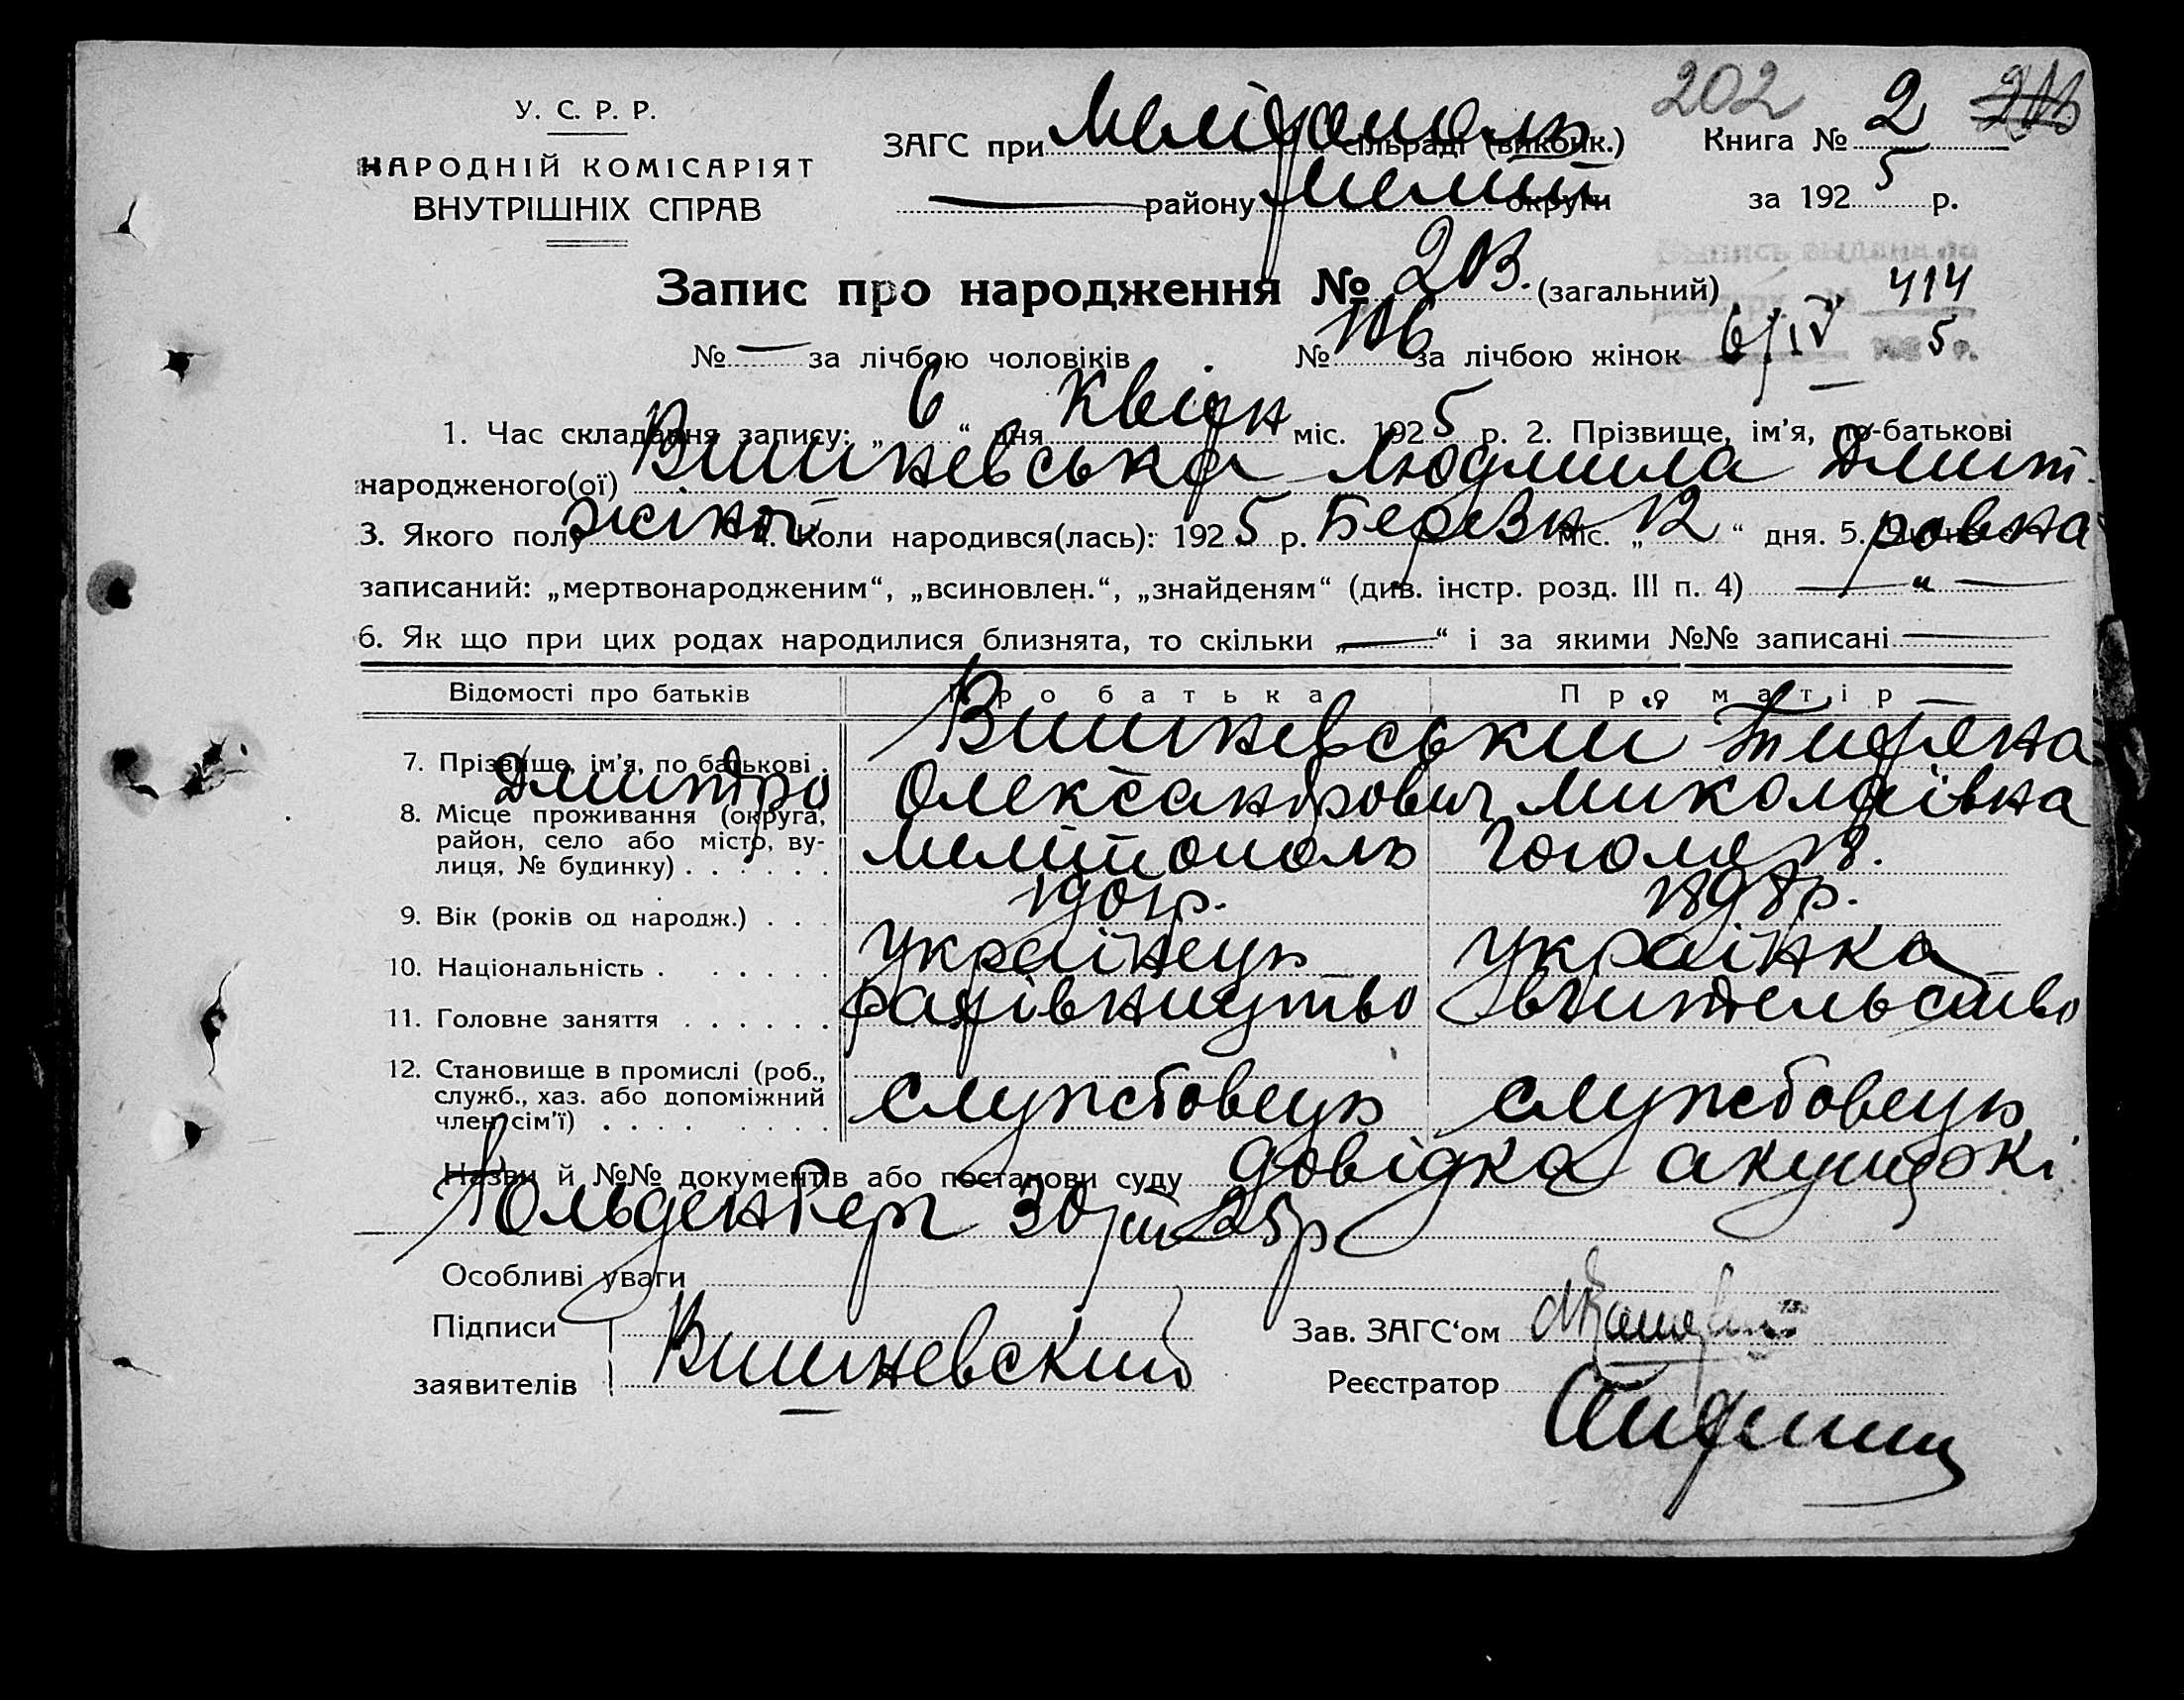 202 2
У. С. Р. Р.
НАРОДНІЙ КОМІСАРІЯТ
ВНУТРІШНІХ СПРАВ
ЗАГС при Мелітополь сільраді (виконк.) Книга № 2
району Меліт округи за 1925 р.
Запис про народження № 203. (загальний) 414
№ — за лічбою чоловіків № 106 за лічбою жінок 6/IV 5 р.
1. Час складання запису: „6“ дня Квітн міс. 1925 р. 2. Прізвище, ім'я, по-батькові
народженого(ої) Вишневська Людмила Дмит-
3. Якого полу жіноч 4. Коли народився(лась): 1925 р. Березн міс. „12“ дня. 5. ровна
записаний: „мертвонародженим“, „всиновлен.“, „знайденям“ (див. інстр. розд. III п. 4) — „ —
6. Як що при цих родах народилися близнята, то скільки „—“ і за якими №№ записані —
Відомості про батьків Про батька Про матір
7. Прізвище, ім'я, по батькові Вишневський Титяна
Дмитро Олександрович Миколаївна
8. Місце проживання (округа, район, село або місто, вулиця, № будинку) Мелітополь Гоголя 18.
9. Вік (років од народж.) 1901р. 1898р.
10. Національність українець українка
11. Головне заняття рахівництво вчительство
12. Становище в промислі (роб., служб., хаз. або допоміжний член сім'ї) службовець службовець
Назви й №№ документів або постанови суду довідка акушерки
Гольденберг 30/III 25р
Особливі уваги
Підписи
заявителів Вишневский
Зав. ЗАГС'ом
Реєстратор